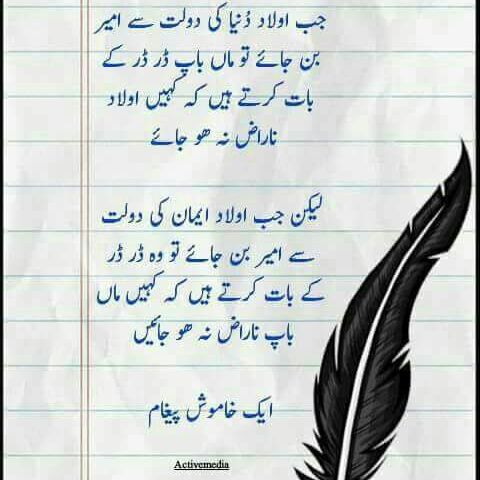 جب اولاد دُنیا کی دولت سے امیر
بن جائے تو ماں باپ ڈر ڈر کے
بات کرتے ہیں کہ کہیں اولاد
ناراض نہ ھو جائے
لیکن جب اولاد ایمان کی دولت
سے امیر بن جائے تو وہ ڈر ڈر
کے بات کرتے ہیں کہ کہیں ماں
باپ ناراض نہ ھو جائیں
ایک خاموش پیغام
Activemedia